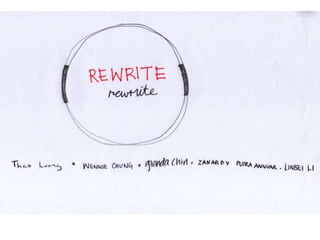 REWRITE
rewrite
Theo Luong • WENNIE CHUNG • glenda chin • ZANARDY PUTRA ANWAR • LINBEI LI